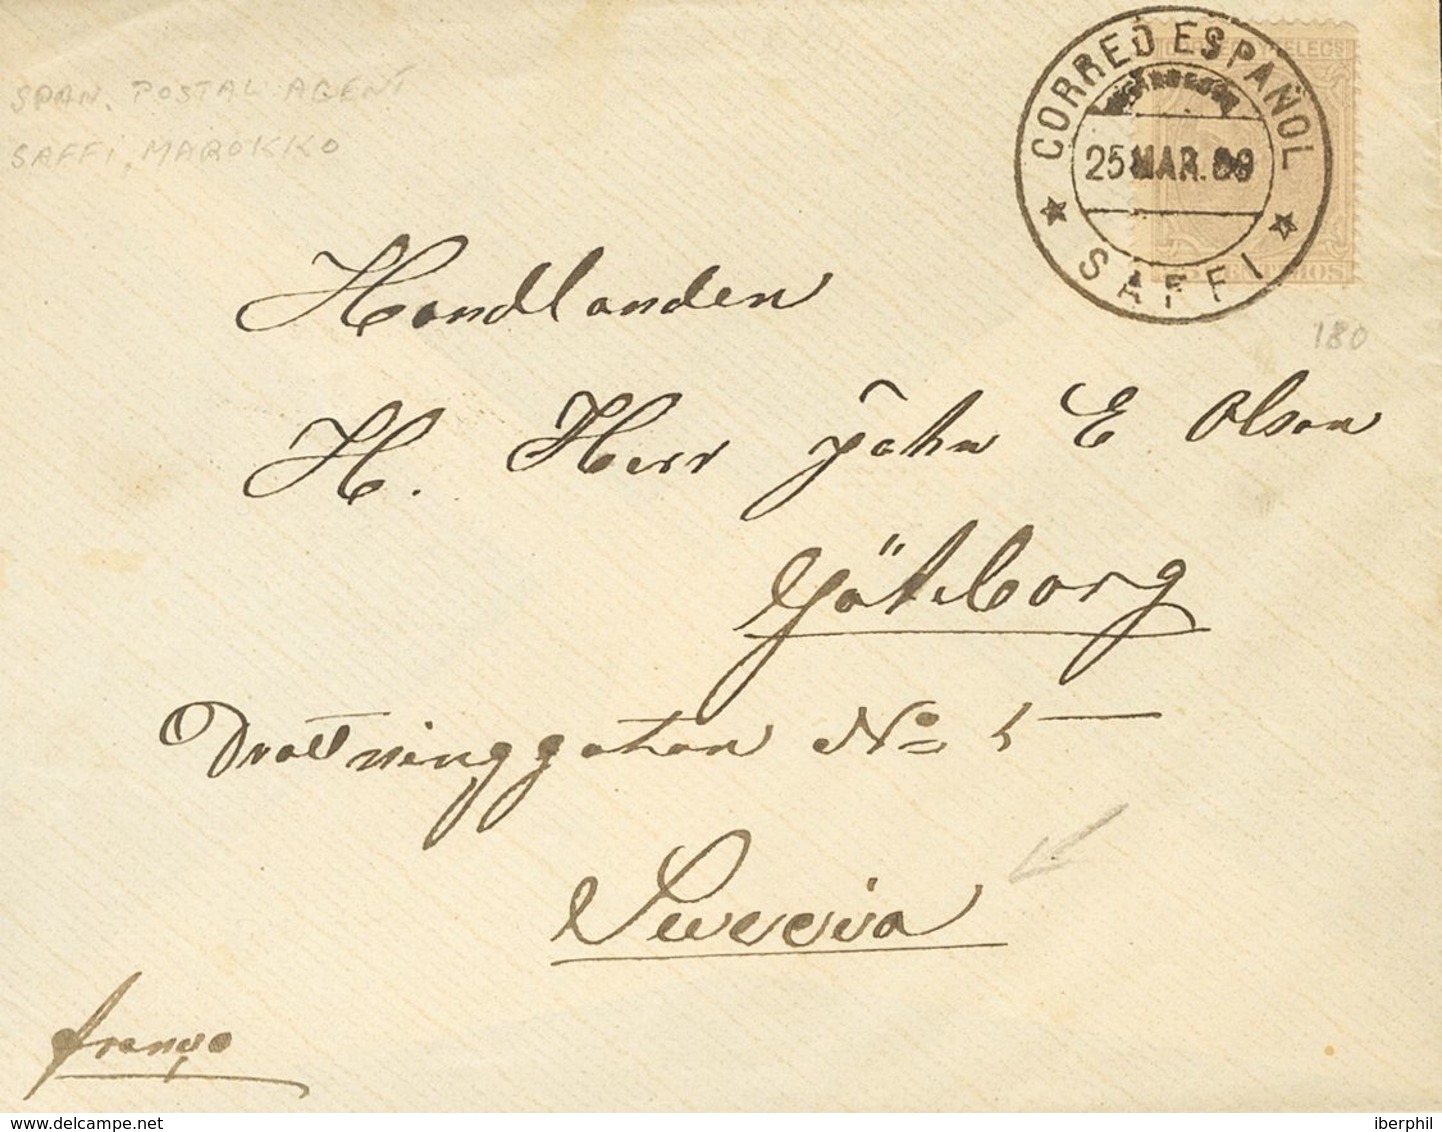 SPAN. POSTAL AGENT
SAFFI, MAROKKO
CORREO ESPAÑOL
25 MAR. 89
SAFFI
180
Handlanden
H. Herr John E Olson
Göteborg
Drottninggatan No 5
Suecia
franço
www.delcampe.net
iberphil